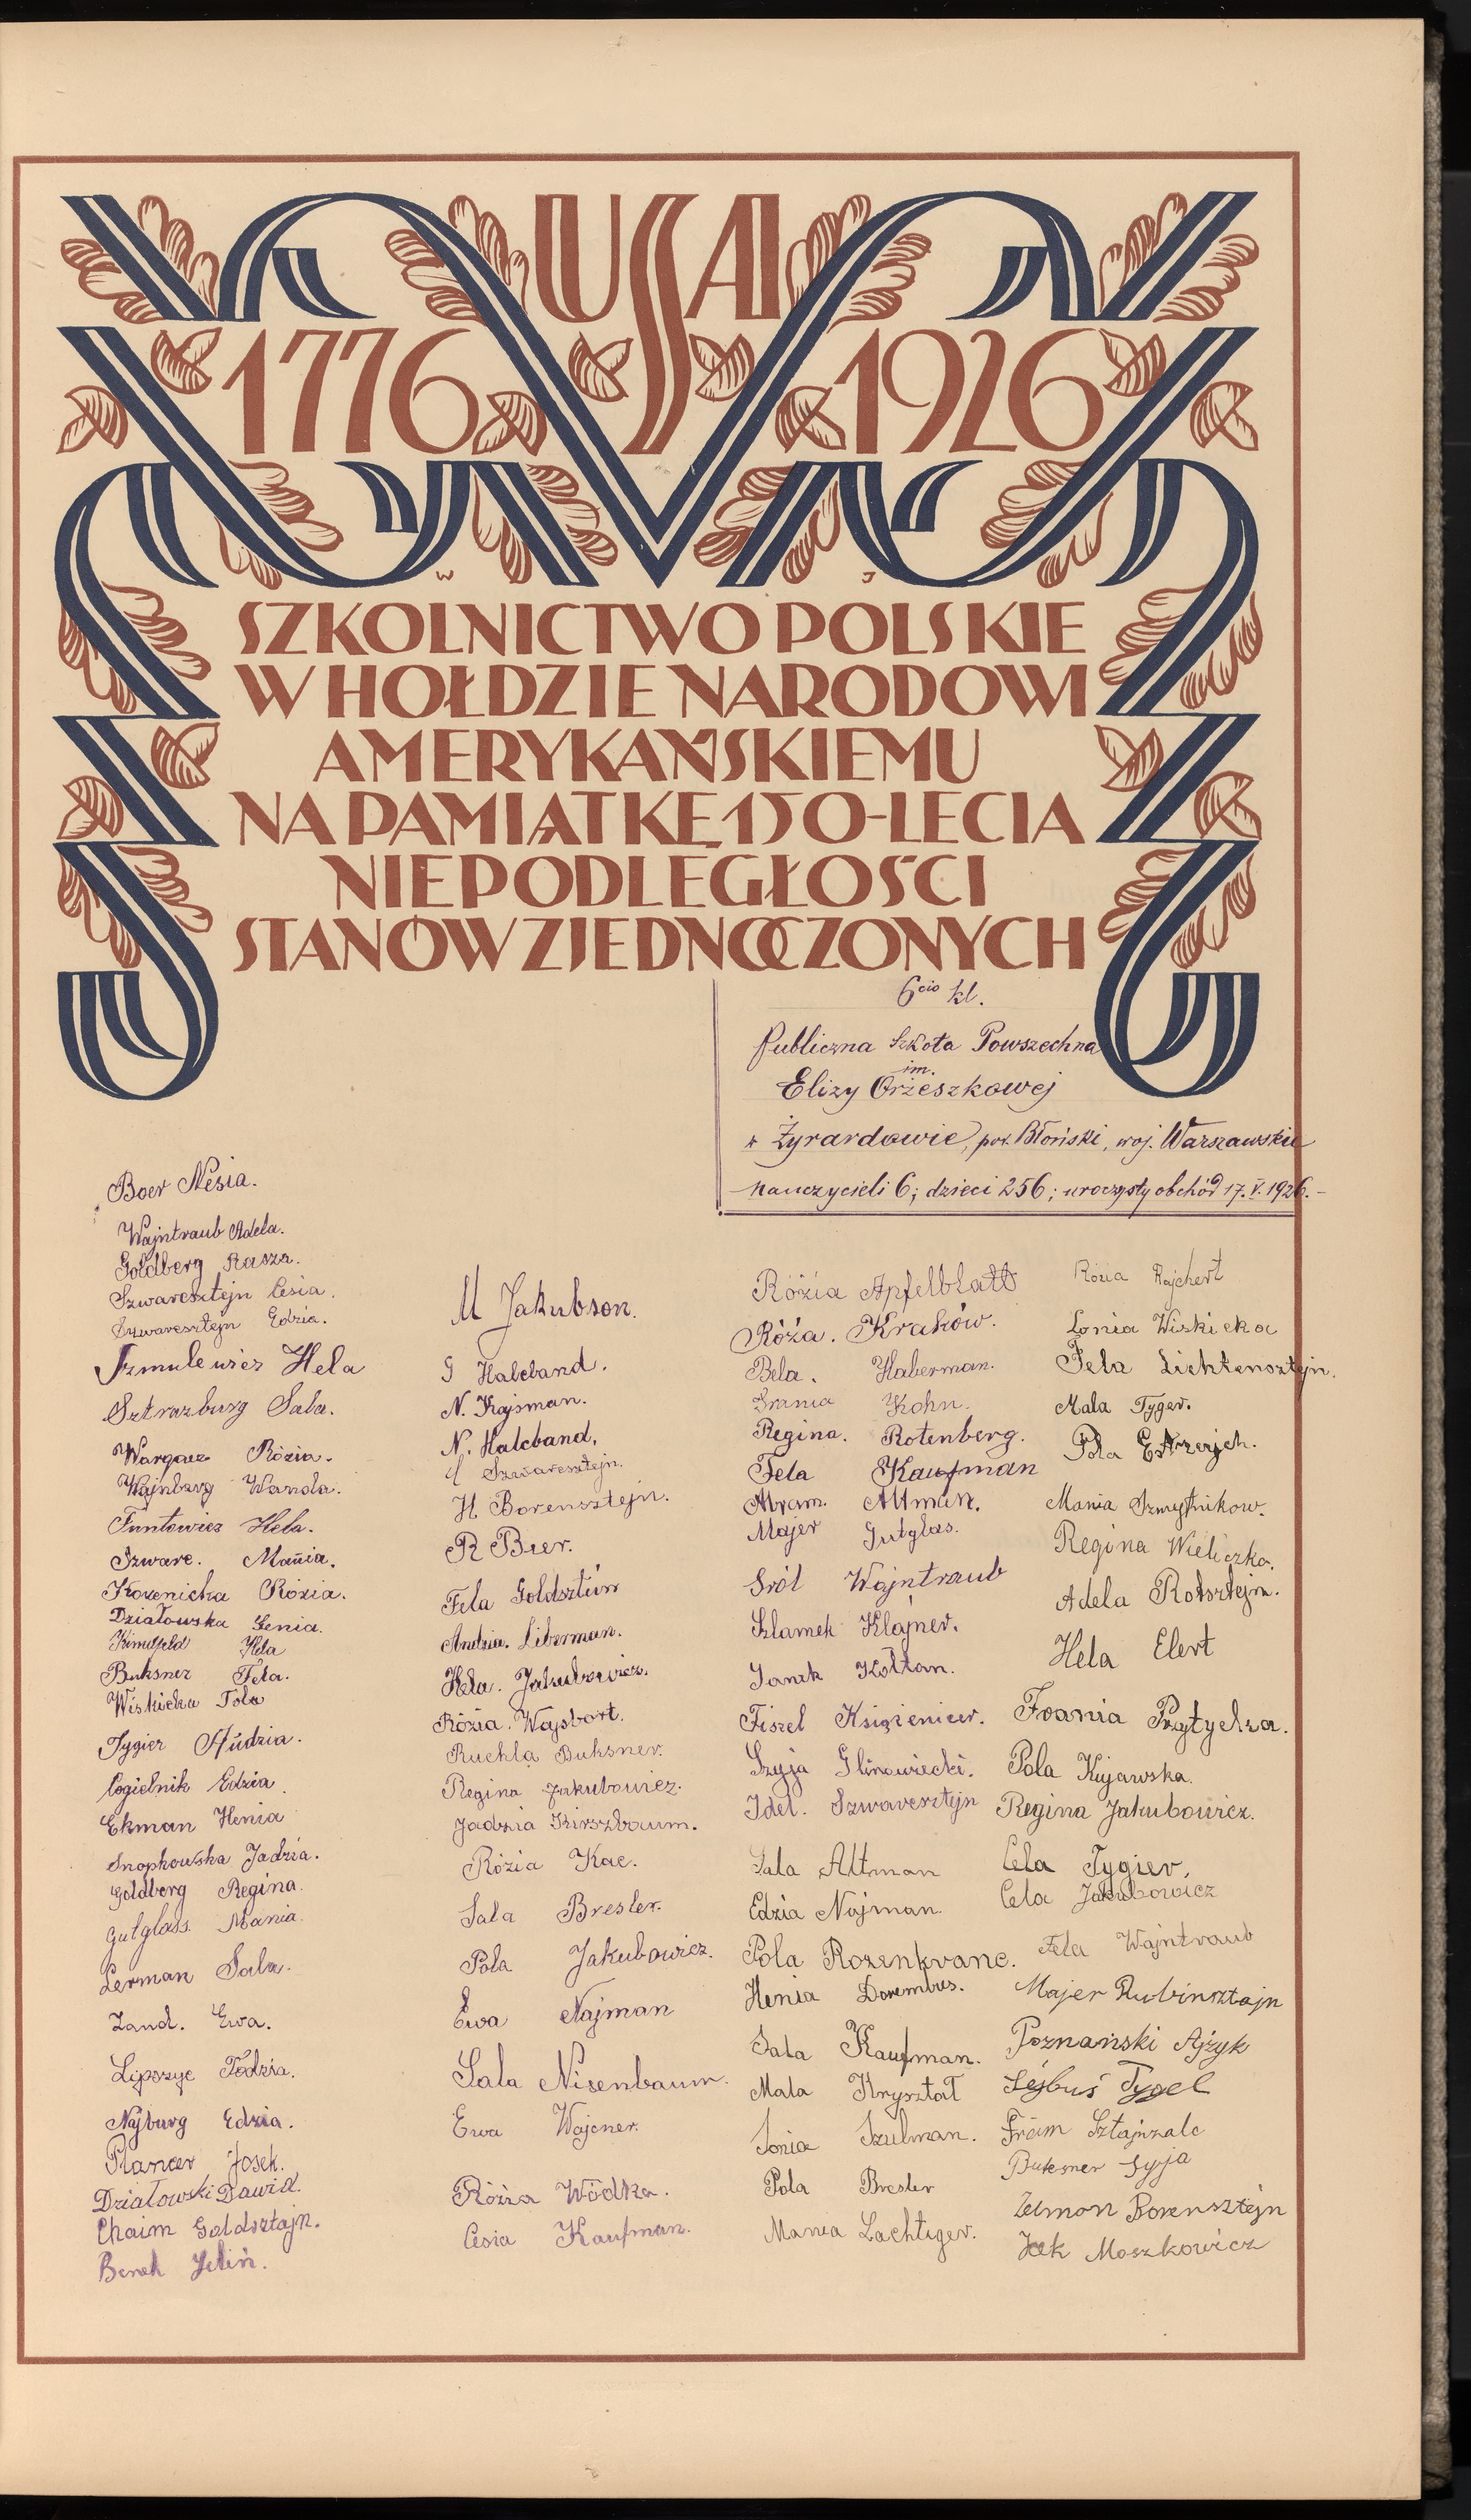 USA
1776 1926
W J
SZKOLNICTWO POLSKIE
W HOŁDZIE NARODOWI
AMERYKAŃSKIEMU
NA PAMIĄTKĘ 150-LECIA
NIEPODLEGŁOŚCI
STANÓW ZJEDNOCZONYCH
6cio kl.
Publiczna Szkoła Powszechna
im.
Elizy Orzeszkowej
w Żyrardowie, pow. Błoński, woj. Warszawskie
nauczycieli 6; dzieci 256; uroczysty obchód 17.V.1926.-
Boer Nesia.
Wajntraub Adela.
Goldberg Rasza.
Szwaresztejn Cesia.
Szwaresztejn Edzia.
Szmulewicz Hela
Sztrazburg Sala.
Wargacz Rózia.
Wajnberg Wanda.
Funtowicz Hela.
Szwarc. Mania.
Kozenicka Rózia.
Działowska Genia.
Hela
Buksner Fela.
Wiskicka Pola
Tygier Hudzia.
Cogielnik Edzia.
Ekman Henia
Snopkowska Jadzia.
Goldberg Regina.
Gutglass. Mania.
Lerman Sala.
Zand. Ewa.
Lipszyc Fodzia.
Najburg Edzia.
Plancer Josek.
Działowski Dawid.
Chaim Goldsztajn.
Benek Jeliń.
M Jakubson.
G Halcband.
N. Kajsman.
N. Halcband.
Szwaresztejn.
H Borensztejn.
R Bier.
Fela Goldsztein
Andzia. Liberman.
Hela. Jakubowicz.
Rózia. Wajsbort.
Ruchla Buksner.
Regina Jakubowicz.
Jadzia Kirszbaum.
Rózia Kac.
Sala Bresler.
Pola Jakubowicz.
Ewa Najman
Sala Nisenbaum.
Ewa Wajcner.
Rózia Wódka.
Cesia Kaufman.
Rózia Apfelblatt
Róża. Kraków.
Bela. Haberman.
Frania Kohn.
Regina. Rotenberg.
Fela Kaufman
Abram. Altman.
Majer Gutglas.
Sról Wajntraub
Szlamek Klajner.
Janek Kołtan.
Fiszel Księżenicer.
Szyja Glinowiecki.
Idel. Szwaresztejn
Sala Altman
Edzia Najman.
Pola Rozenkranc.
Henia Dorembus.
Sala Kaufman.
Mala Kryształ
Sonia Szulman.
Pola Bresler
Mania Lachtiger.
Rózia Rajchert
Lonia Wiskicka
Fela Lichtensztejn.
Mala Tyger.
Pola
Mania Szmytnikow.
Regina Wieliczko.
Adela Rotsztejn.
Hela Elert
Frania Przytycka.
Pola Kujawska.
Regina Jakubowicz.
Cela Tygier.
Cela Jakubowicz
Fela Wajntraub
Majer Rubinsztajn
Poznański Ajzyk
Lejbuś Tygel
Froim Sztajnzalc
Buksner Syja
Zelmon Borensztejn
Icek Moszkowicz